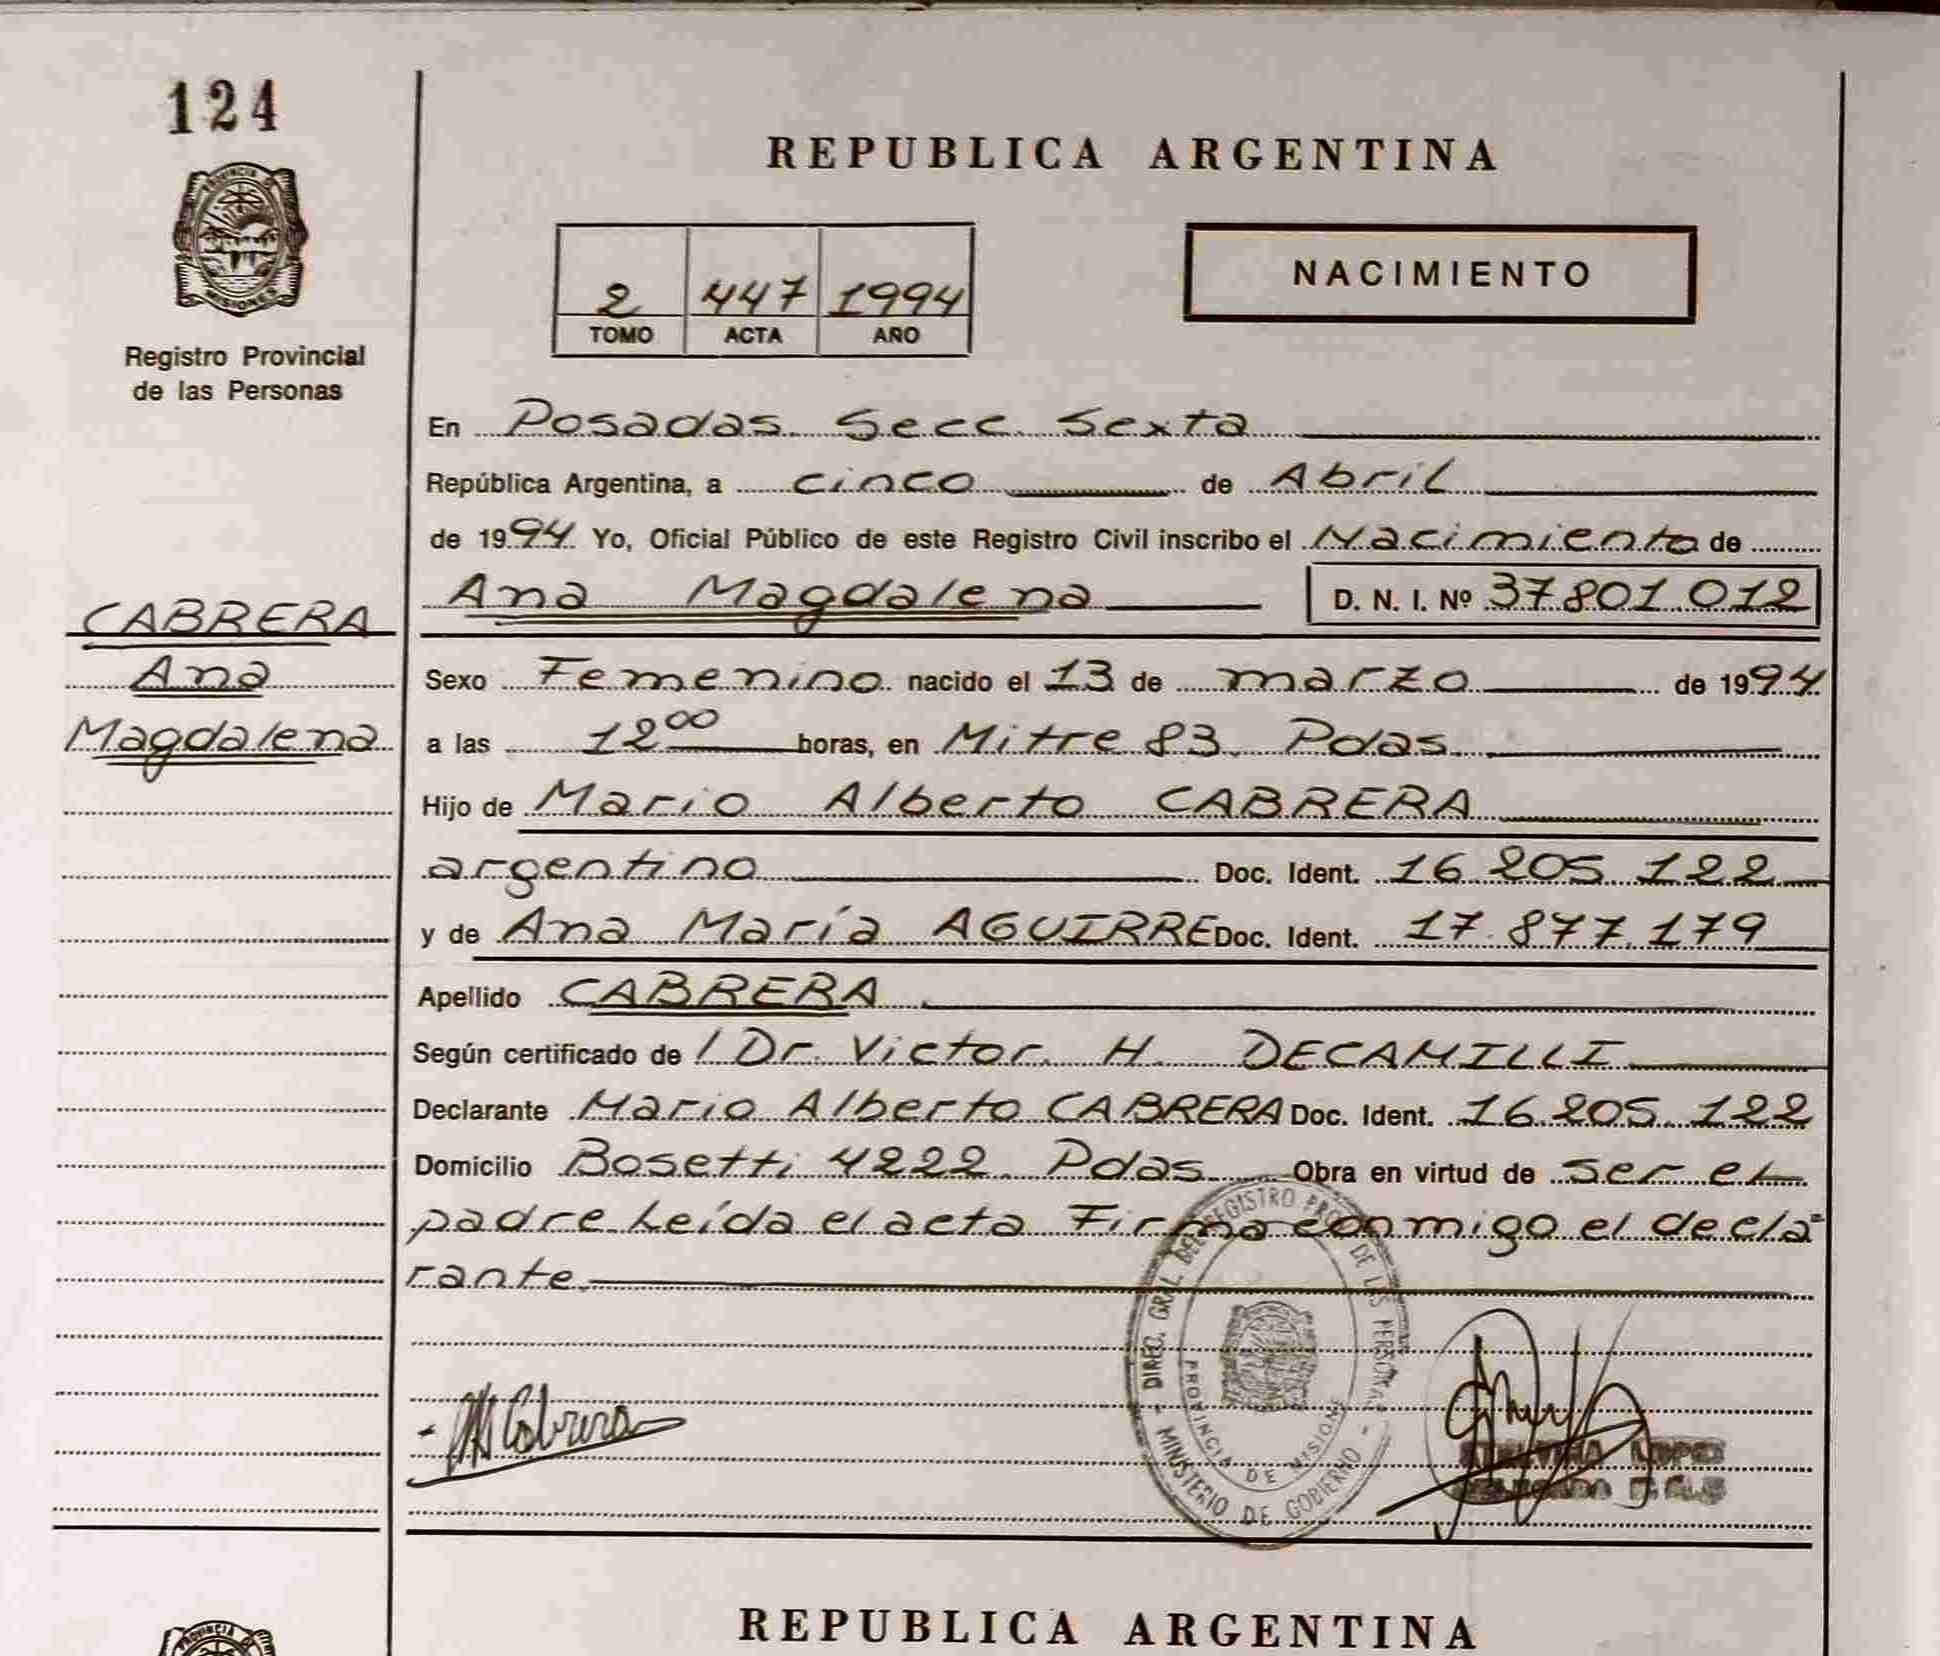 124
PROVINCIA D
MISIONES
Registro Provincial
de las Personas
REPUBLICA ARGENTINA
2 447 1994
TOMO ACTA AÑO
NACIMIENTO
En Posadas Secc Sexta
República Argentina, a cinco de Abril
de 1994 Yo, Oficial Público de este Registro Civil inscribo el Nacimiento de
Ana Magdalena D. N. I. Nº 37 801 012
CABRERA
Ana
Magdalena
Sexo Femenino nacido el 13 de marzo de 1994
a las 12 00 horas, en Mitre 83 Pdas
Hijo de Mario Alberto CABRERA
argentino Doc. Ident. 16 205 122
y de Ana María AGUIRRE Doc. Ident. 17 877 179
Apellido CABRERA
Según certificado de l Dr. Victor H. DECAMILLI
Declarante Mario Alberto CABRERA Doc. Ident. 16 205 122
Domicilio Bosetti 4222 Pdas Obra en virtud de ser el
padre Leída el acta Firma conmigo el decla=
rante
DIREC. GRAL DEL REGISTRO PROV. DE LAS PERSONAS
- MINISTERIO DE GOBIERNO -
PROVINCIA DE MISIONES
Cabrera
LOPEZ
REPUBLICA ARGENTINA
PROVINCIA D